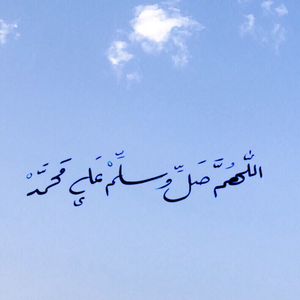 اللَّهُمَّ صَلِّ وَسلِّمْ عَلي مُحَمَّدْ